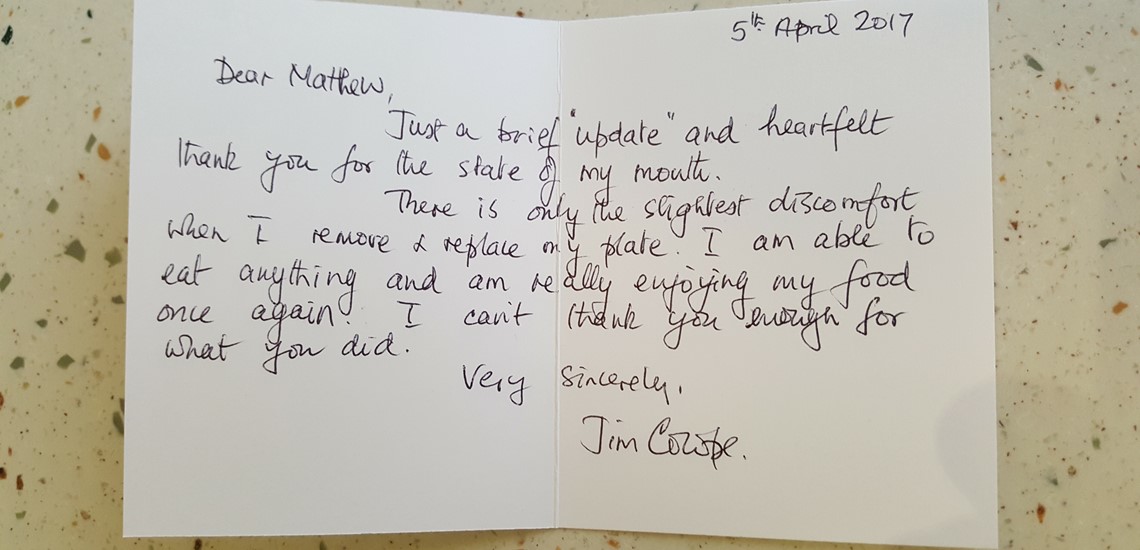 5th April 2017
Dear Mathew,
Just a brief "update" and heartfelt
thank you for the state of my mouth.
There is only the slightest discomfort
when I remove & replace my plate. I am able to
eat anything and am really enjoying my food
once again. I can't thank you enough for
what you did.
Very sincerely,
Jim